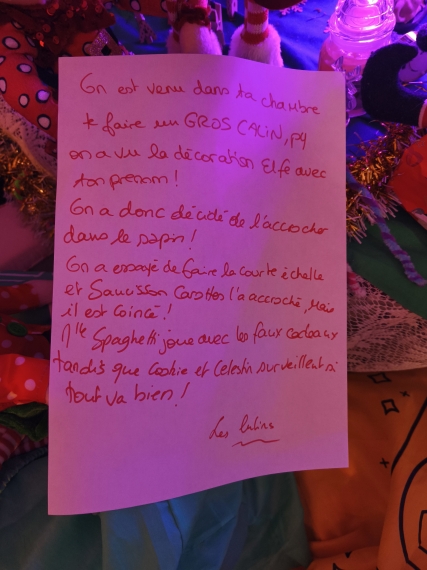 On est venu dans ta chambre
* faire un GROS CALIN, py
on a vu la décoration Elfe avec
ton prénom !
On a donc décidé de l'accrocher
dans le sapin !
On a essayé de faire la courte échelle
et Saucisson Carottes l'a accroché, Mais
il est coincé !
Mlle Spaghetti joue avec les faux cadeaux
tandis que Cookie et Celestin surveillent si
tout va bien !
Les lutins